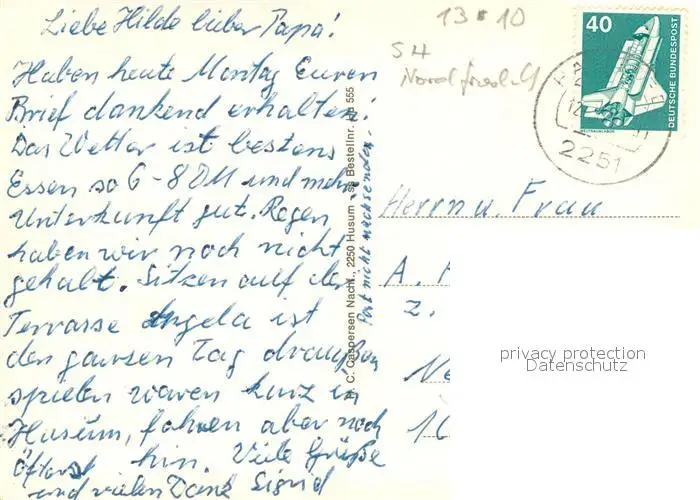 Liebe Hilde lieber Papa!
Haben heute Montag Euren
Brief dankend erhalten!
Das Wetter ist bestens
Essen so 6-8 DM und mehr
Unterkunft gut. Regen
haben wir noch nicht
gehabt. Sitzen auf der
Terrasse Angela ist
den ganzen Tag draußen
spielen waren kurz in
Husum, fahren aber noch
öfters hin. Viele Grüße
und vielen Dank Sigrid
C. Caspersen Nachf., 2250 Husum
Bestellnr. 555
Post nicht nachsenden.
13 10
SH
40
DEUTSCHE BUNDESPOST
2251
Herrn u. Frau
A.
z.
privacy protection
Datenschutz